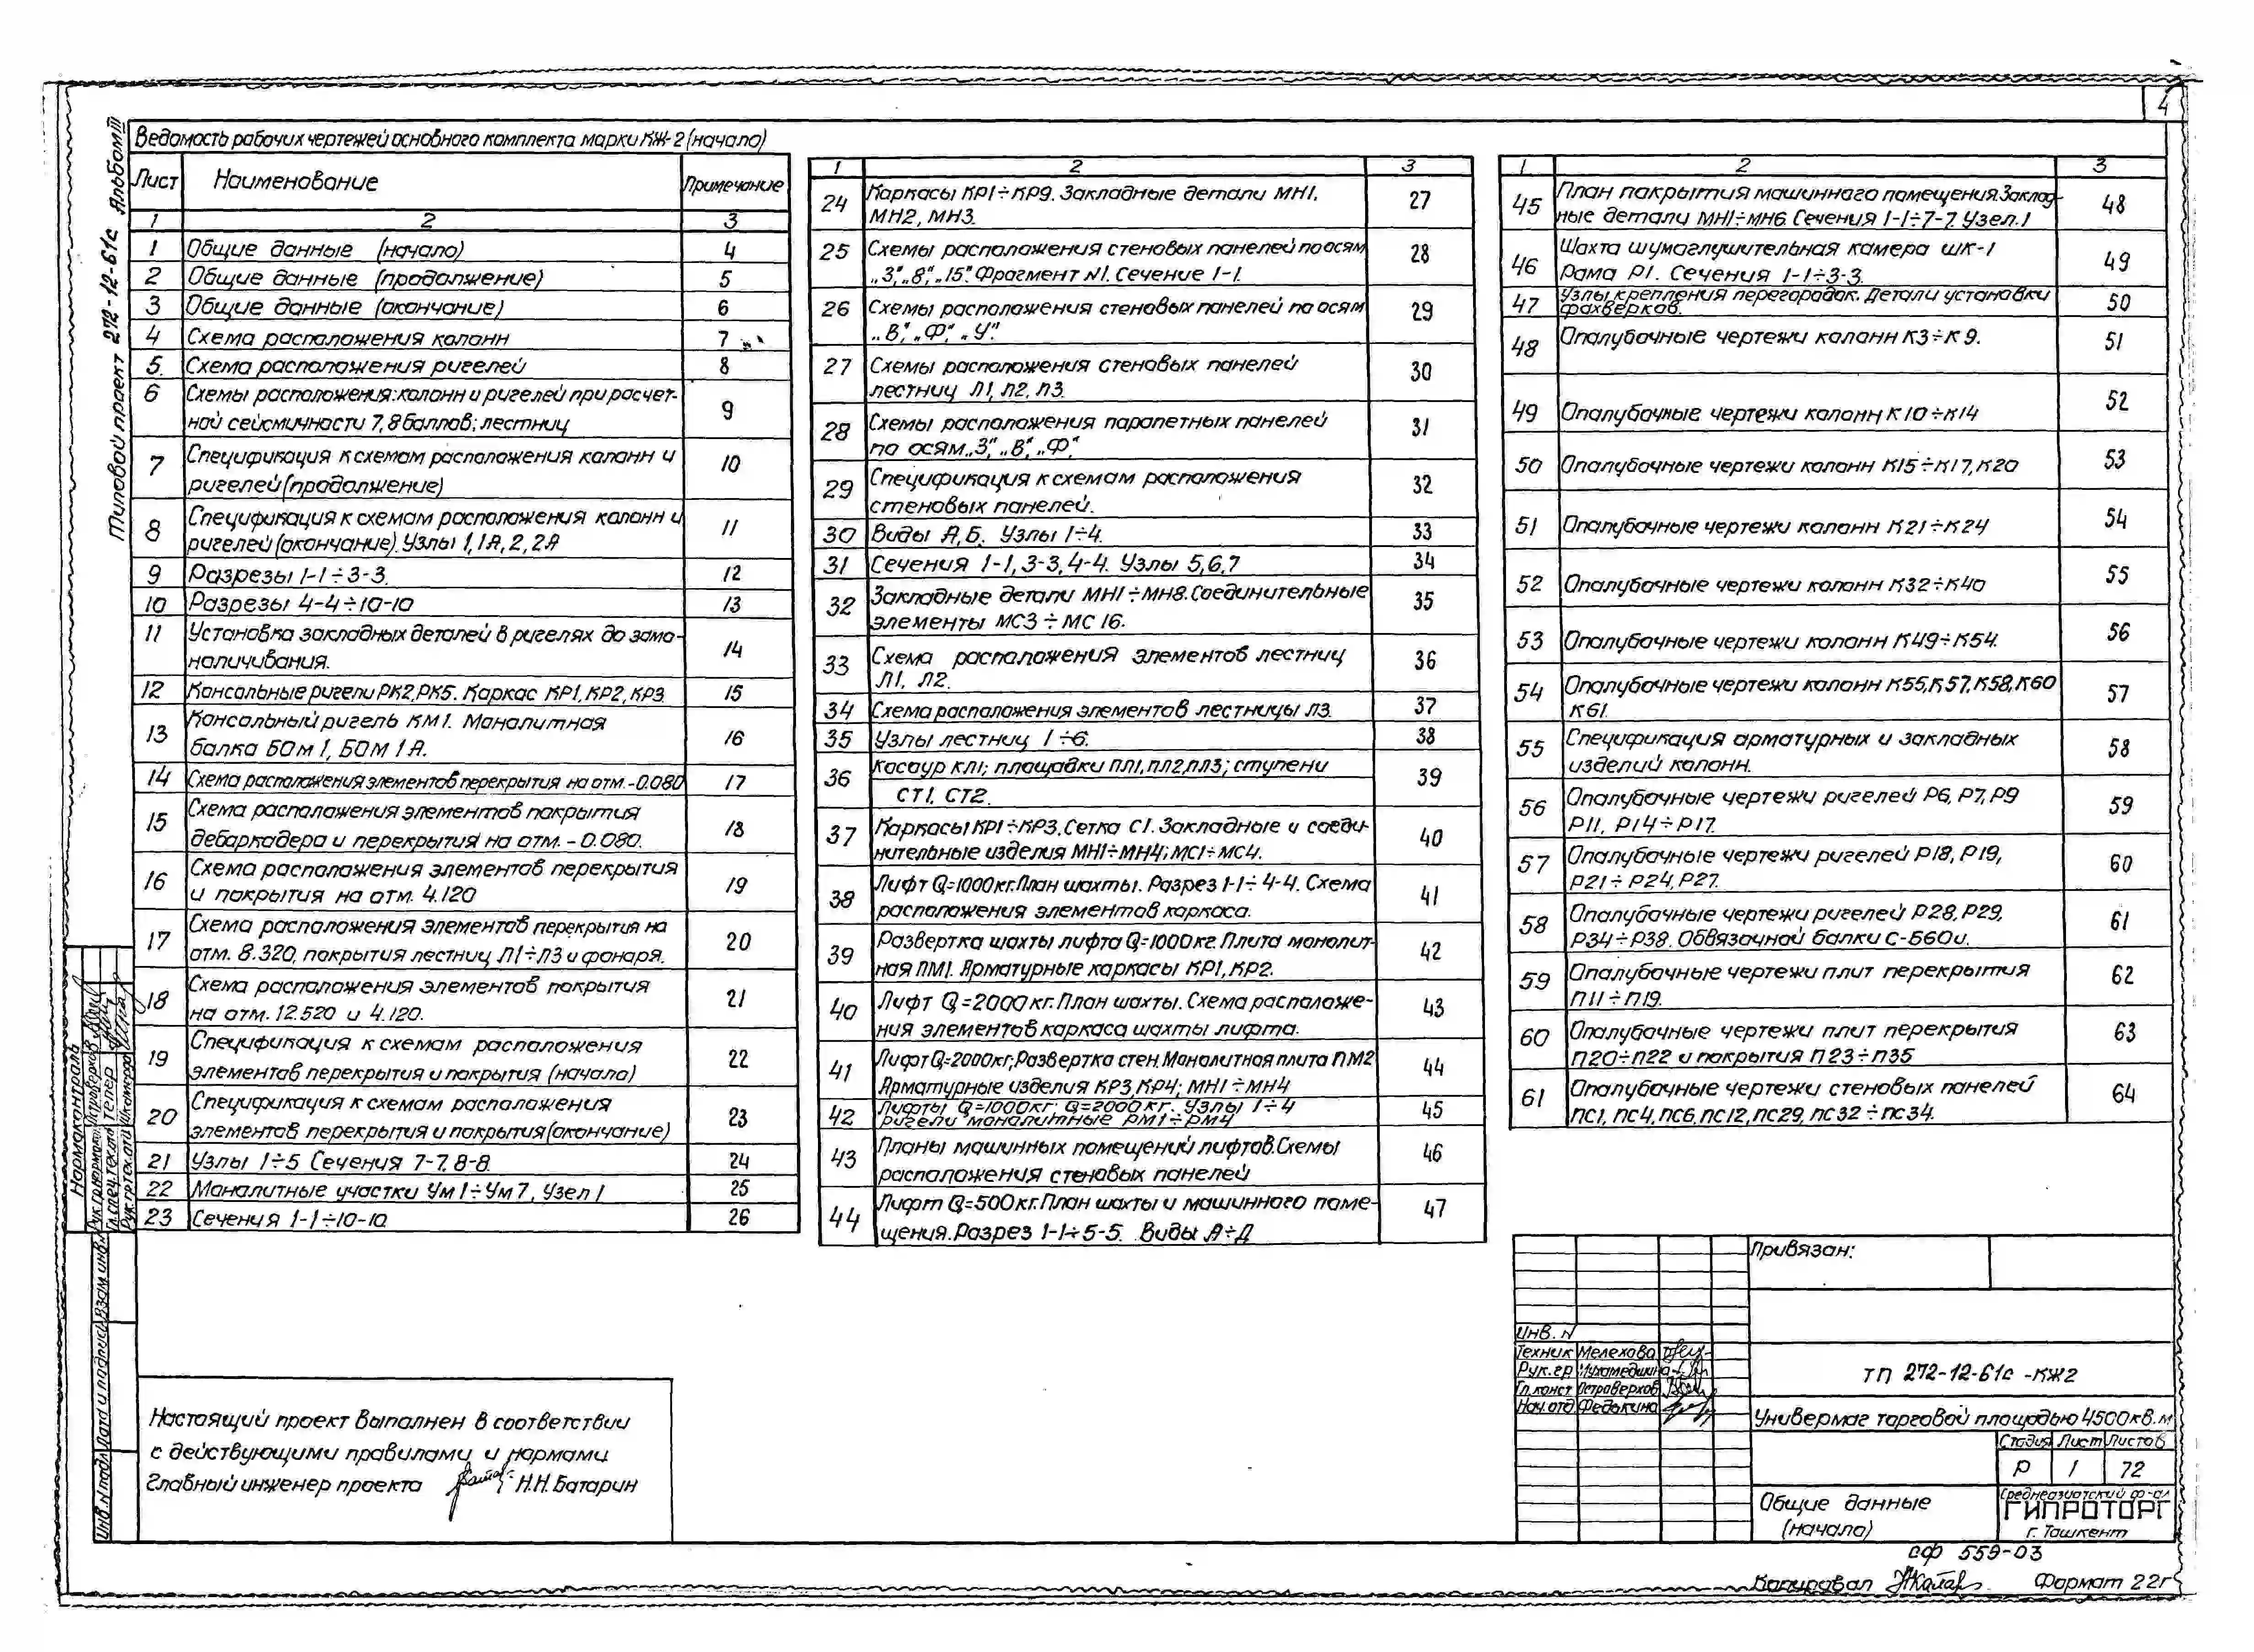 4
Типовой проект 272-12-61с Альбом III
Ведомость рабочих чертежей основного комплекта марки КЖ-2 (начало)
Лист Наименование Примечание
1 2 3
1 Общие данные (начало) 4
2 Общие данные (продолжение) 5
3 Общие данные (окончание) 6
4 Схема расположения колонн 7
5. Схема расположения ригелей 8
6 Схемы расположения: колонн и ригелей при расчет-
ной сейсмичности 7, 8 баллов; лестниц 9
7 Спецификация к схемам расположения колонн и
ригелей (продолжение) 10
8 Спецификация к схемам расположения колонн и
ригелей (окончание). Узлы 1, 1А, 2, 2А 11
9 Разрезы 1-1÷3-3. 12
10 Разрезы 4-4÷10-10 13
11 Установка закладных деталей в ригелях до замо-
наличивания. 14
12 Консольные ригели РК2, РК5. Каркас КР1, КР2, КР3. 15
13 Консольный ригель КМ1. Монолитная
балка БОм 1, БОМ 1А. 16
14 Схема расположения элементов перекрытия на отм. -0.080 17
15 Схема расположения элементов покрытия
дебаркадера и перекрытия на отм. -0.080. 18
16 Схема расположения элементов перекрытия
и покрытия на отм. 4.120 19
17 Схема расположения элементов перекрытия на
отм. 8.320, покрытия лестниц Л1÷Л3 и фонаря. 20
18 Схема расположения элементов покрытия
на отм. 12.520 и 4.120. 21
19 Спецификация к схемам расположения
элементов перекрытия и покрытия (начало) 22
20 Спецификация к схемам расположения
элементов перекрытия и покрытия (окончание) 23
21 Узлы 1÷5 Сечения 7-7, 8-8. 24
22 Монолитные участки Ум 1÷Ум 7, Узел 1 25
23 Сечения 1-1÷10-10. 26
1 2 3
24 Каркасы КР1÷КР9. Закладные детали МН1,
МН2, МН3. 27
25 Схемы расположения стеновых панелей по осям
„3", „8", „15". Фрагмент N1. Сечение 1-1. 28
26 Схемы расположения стеновых панелей по осям
„В", „Ф", „У". 29
27 Схемы расположения стеновых панелей
лестниц Л1, Л2, Л3. 30
28 Схемы расположения парапетных панелей
по осям „3", „В", „Ф". 31
29 Спецификация к схемам расположения
стеновых панелей. 32
30 Виды А, Б. Узлы 1÷4. 33
31 Сечения 1-1, 3-3, 4-4. Узлы 5, 6, 7 34
32 Закладные детали МН1÷МН8. Соединительные
элементы МС3÷МС16. 35
33 Схема расположения элементов лестниц
Л1, Л2. 36
34 Схема расположения элементов лестницы Л3. 37
35 Узлы лестниц 1÷6. 38
36 Косоур КЛ1; площадки ПЛ1, ПЛ2, ПЛ3; ступени
СТ1, СТ2. 39
37 Каркасы КР1÷КР3. Сетка С1. Закладные и соеди-
нительные изделия МН1÷МН4; МС1÷МС4. 40
38 Лифт Q=1000кг. План шахты. Разрез 1-1÷4-4. Схема
расположения элементов каркаса. 41
39 Развертка шахты лифта Q=1000кг. Плита монолит-
ная ПМ1. Арматурные каркасы КР1, КР2. 42
40 Лифт Q=2000кг. План шахты. Схема расположе-
ния элементов каркаса шахты лифта. 43
41 Лифт Q=2000кг, Развертка стен. Монолитная плита ПМ2
Арматурные изделия КР3, КР4; МН1÷МН4 44
42 Лифты Q=1000кг; Q=2000кг. Узлы 1÷4
ригели монолитные РМ1÷РМ4 45
43 Планы машинных помещений лифтов. Схемы
расположения стеновых панелей 46
44 Лифт Q=500кг. План шахты и машинного поме-
щения. Разрез 1-1÷5-5. Виды А÷Д 47
1 2 3
45 План покрытия машинного помещения. Заклад-
ные детали МН1÷МН6. Сечения 1-1÷7-7. Узел 1 48
46 Шахта шумоглушительная камера ШК-1
Рама Р1. Сечения 1-1÷3-3. 49
47 Узлы крепления перегородок. Детали установки
фахверков. 50
48 Опалубочные чертежи колонн К3÷К9. 51
49 Опалубочные чертежи колонн К10÷К14 52
50 Опалубочные чертежи колонн К15÷К17, К20 53
51 Опалубочные чертежи колонн К21÷К24 54
52 Опалубочные чертежи колонн К32÷К40 55
53 Опалубочные чертежи колонн К49÷К54. 56
54 Опалубочные чертежи колонн К55, К57, К58, К60
К61. 57
55 Спецификация арматурных и закладных
изделий колонн. 58
56 Опалубочные чертежи ригелей Р6, Р7, Р9
Р11, Р14÷Р17. 59
57 Опалубочные чертежи ригелей Р18, Р19,
Р21÷Р24, Р27. 60
58 Опалубочные чертежи ригелей Р28, Р29,
Р34÷Р38. Обвязочной балки С-Б60и. 61
59 Опалубочные чертежи плит перекрытия
П11÷П19. 62
60 Опалубочные чертежи плит перекрытия
П20÷П22 и покрытия П23÷П35 63
61 Опалубочные чертежи стеновых панелей
ПС1, ПС4, ПС6, ПС12, ПС29, ПС32÷ПС34. 64
Нормоконтроль
Рук.гр.нормок. Петроверхов
Гл.спец.техно Тепер
Инв.N подл. Дата и подпись Взам инв.N
Настоящий проект выполнен в соответствии
с действующими правилами и нормами
Главный инженер проекта Н.Н.Батарин
Привязан:
Инв. N
Техник Мелехова
Рук.гр Мухамедшина
Гл.конст Петраверхов
Нач.отд Федькина
ТП 272-12-61с -КЖ2
Универмаг торговой площадью 4500кв.м
Стадия Лист Листов
Р 1 72
Общие данные
(начало)
Среднеазиатский ф-ал
ГИПРОТОРГ
г. Ташкент
сф 559-03
Копировал Формат 22г